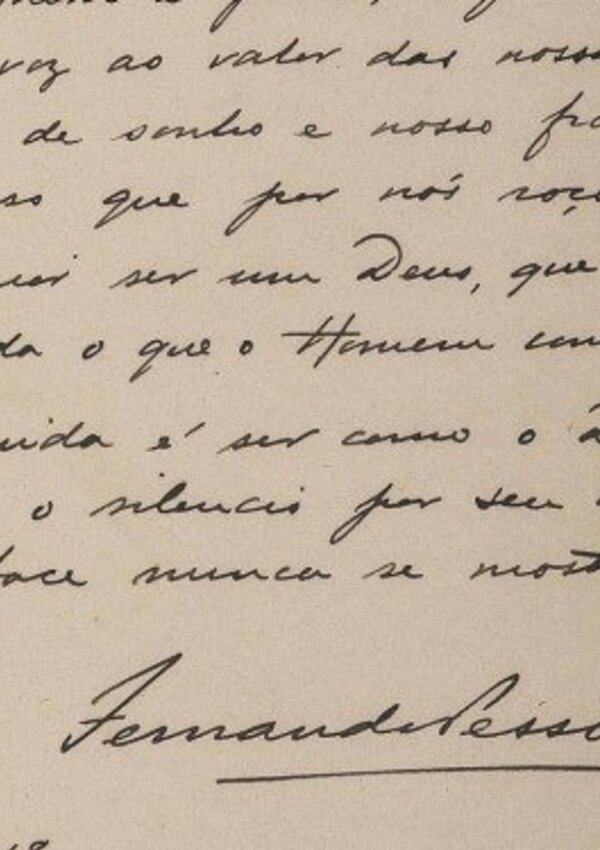 voz ao valer das nossa
de sonho e nosso fra
so que por nós roço
ser um Deus, que
da o que o Homem com
uida é ser como o á
o silencio por seu
face nunca se most
Fernando Pessoa